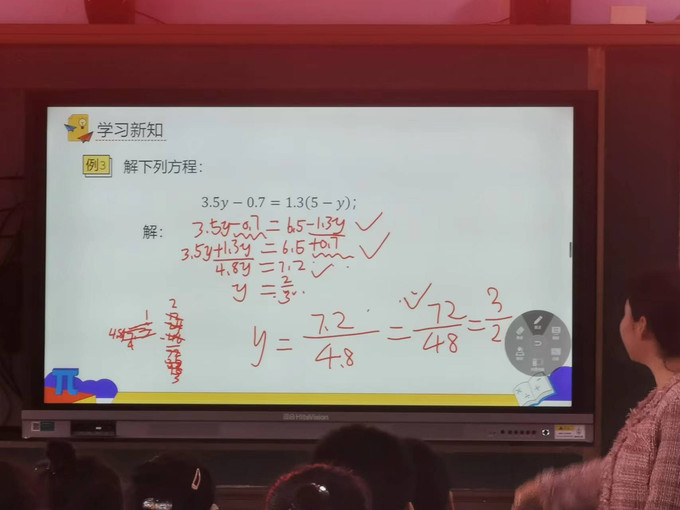 学习新知
例3 解下列方程：
3.5y − 0.7 = 1.3(5 − y);
解：
3.5y-0.7 = 6.5-1.3y ✓
3.5y+1.3y = 6.5+0.7 ✓
4.8y = 7.2 ✓
y = 2/3
y = 7.2/4.8 = 72/48 = 3/2